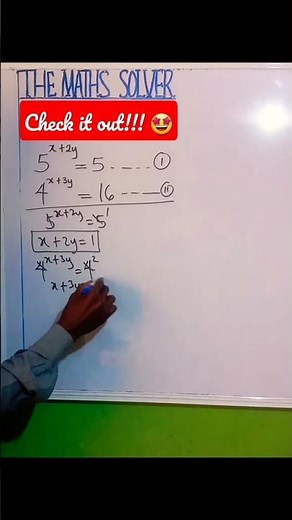 THE MATHS SOLVER
Check it out!!! 🤩
5^{x+2y} = 5 ------ ①
4^{x+3y} = 16 ------ ⑪
5^{x+2y} = 5^1
x+2y=1
4^{x+3y} = 4^2
x+3y